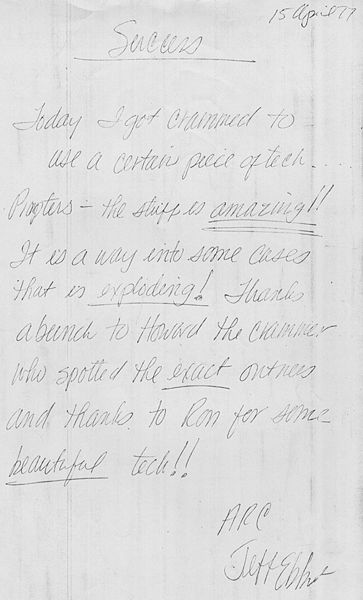 15 April 77
Success
Today I got crammed to
use a certain piece of tech....
- the stuff is amazing!!
It is a way into some cases
that is exploding! Thanks
a bunch to Howard the crammer
who spotted the exact outness
and thanks to Ron for some
beautiful tech!!
ARC
Jeff